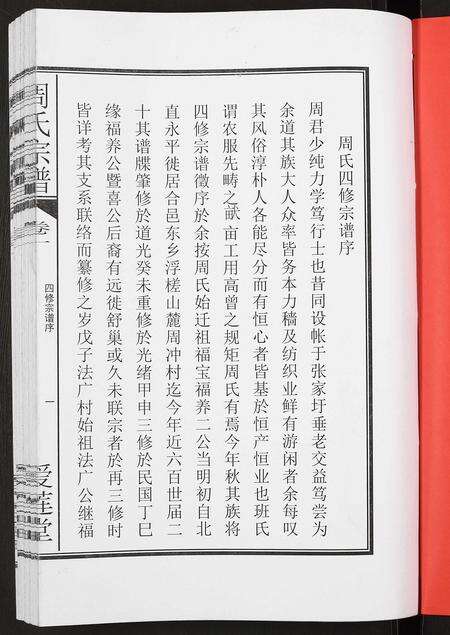 周氏四修宗谱序
周君少纯力学笃行士也昔同设帐于张家圩垂老交益笃尝为
余道其族大人众率皆务本力穑及纺织业鲜有游闲者余每叹
其风俗淳朴人各能尽分而有恒心者皆基於恒产恒业也班氏
谓农服先畴之畎亩工用高曾之规矩周氏有焉今年秋其族将
四修宗谱徵序於余按周氏始迁祖福宝福养二公当明初自北
直永平徙居合邑东乡浮槎山麓周冲村迄今年近六百世届二
十其谱牒肇修於道光癸未重修於光绪甲申三修於民国丁巳
缘福养公暨喜公后裔有远徙舒巢或久未联宗者於再三修时
皆详考其支系联络而纂修之岁戊子法广村始祖法广公继福
周氏宗谱
卷一
四修宗谱序
一
爱莲堂